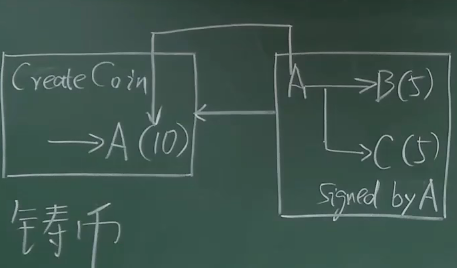 Create Coin
A (10)
A B(5)
C (5)
Signed by A
铸币